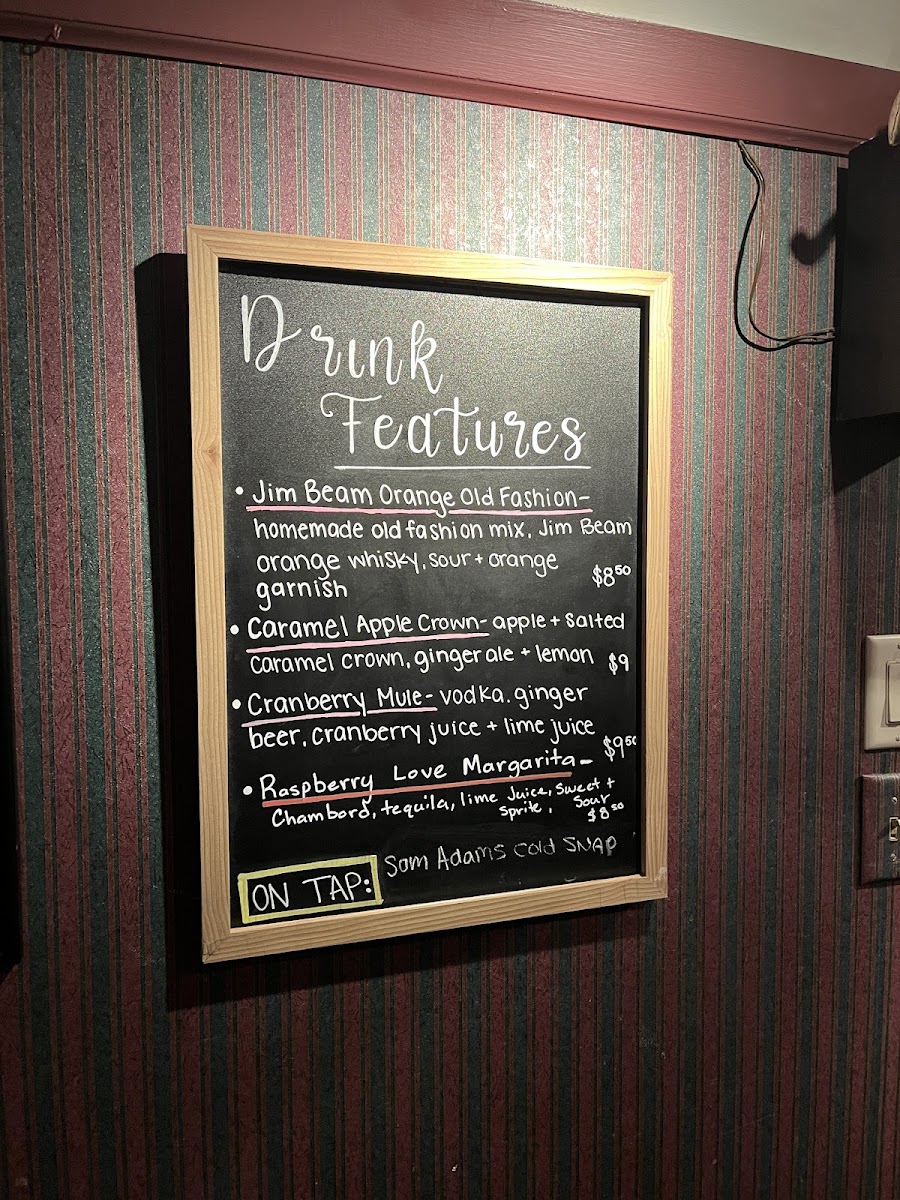 Drink
Features
• Jim Beam Orange Old Fashion-
homemade old fashion mix, Jim Beam
orange whisky, sour + orange
garnish $8⁵⁰
• Caramel Apple Crown- apple + salted
caramel crown, ginger ale + lemon $9
• Cranberry Mule- vodka, ginger
beer, cranberry juice + lime juice $9⁵⁰
• Raspberry Love Margarita-
Chambord, tequila, lime Juice, Sweet +
Sprite, Sour
$8⁵⁰
ON TAP: Sam Adams cold SNAP